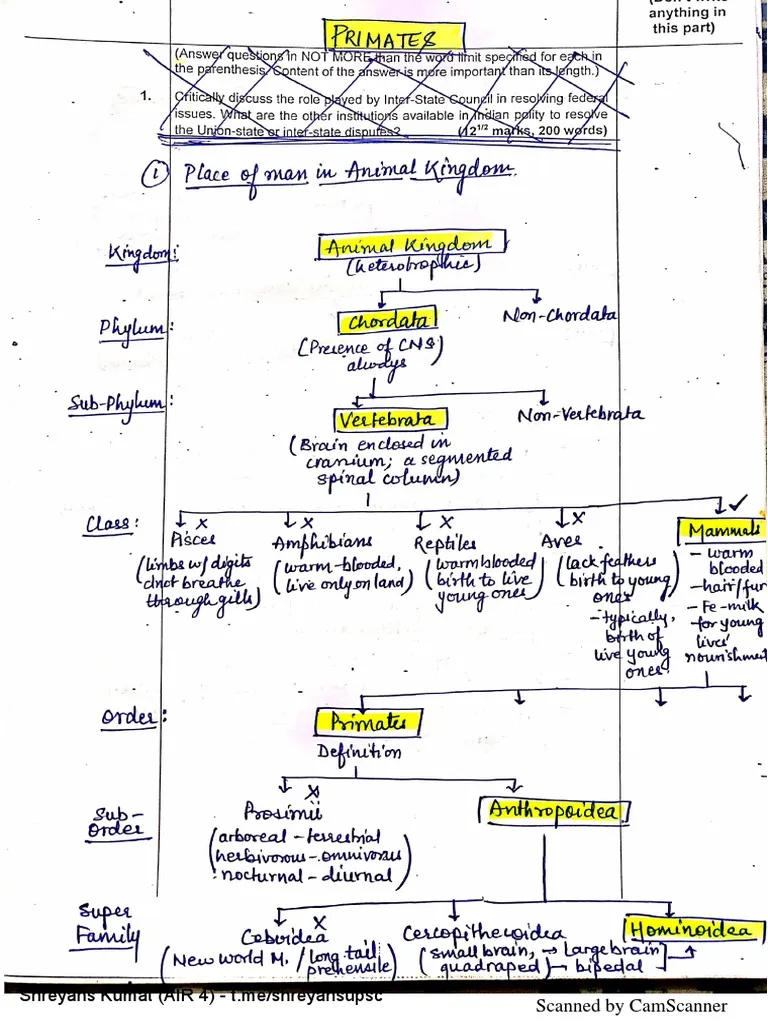 (Don't write
anything in
this part)
PRIMATES
(Answer questions in NOT MORE than the word limit specified for each in
the parenthesis. Content of the answer is more important than its length.)
1. Critically discuss the role played by Inter-State Council in resolving federal
issues. What are the other institutions available in Indian polity to resolve
the Union-state or inter-state disputes? (12 1/2 marks, 200 words)
① Place of man in Animal Kingdom.
Kingdom: Animal Kingdom
(heterotrophic)
Phylum: Chordata Non-Chordata
(Presence of CNS)
always
Sub-Phylum: Vertebrata Non-Vertebrata
(Brain enclosed in
cranium; a segmented
spinal column)
Class: x x x x ✓
Pisces Amphibians Reptiles Aves Mammals
(limbs w/ digits
dnot breathe
through gills)
(warm-blooded,
live only on land)
(warmblooded
birth to live
young ones)
(lack feathers
birth to young
ones)
- typically,
birth of
live young
ones.
- warm
blooded
- hair/fur
- Fe-milk
for young
lives'
nourishment
Order: Primates
Definition
Sub-
order
x
Prosimii Anthropoidea
(arboreal - terrestrial
herbivorous - omnivorous
: nocturnal - diurnal)
Super
Family
x
Ceboidea Cercopithecoidea Hominoidea
(New World M. / long tail
prehensile)
(small brain, → Large brain
quadraped) → bipedal
Shreyans Kumat (AIR 4) - t.me/shreyansupsc
Scanned by CamScanner